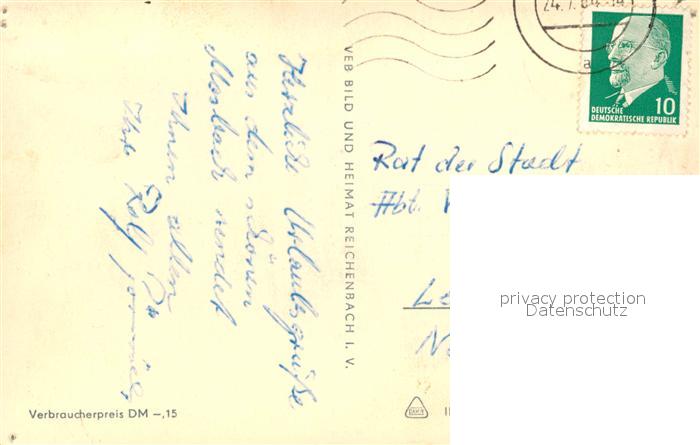 24.7.64-14
a
DEUTSCHE
DEMOKRATISCHE REPUBLIK
10
Herzliche Urlaubsgrüße
aus dem schönen
Mosbach sendet
Ihnen allen
Ihr Rolf
VEB BILD UND HEIMAT REICHENBACH I. V.
Rat der Stadt
Abt.
Le
Verbraucherpreis DM –,15
privacy protection
Datenschutz